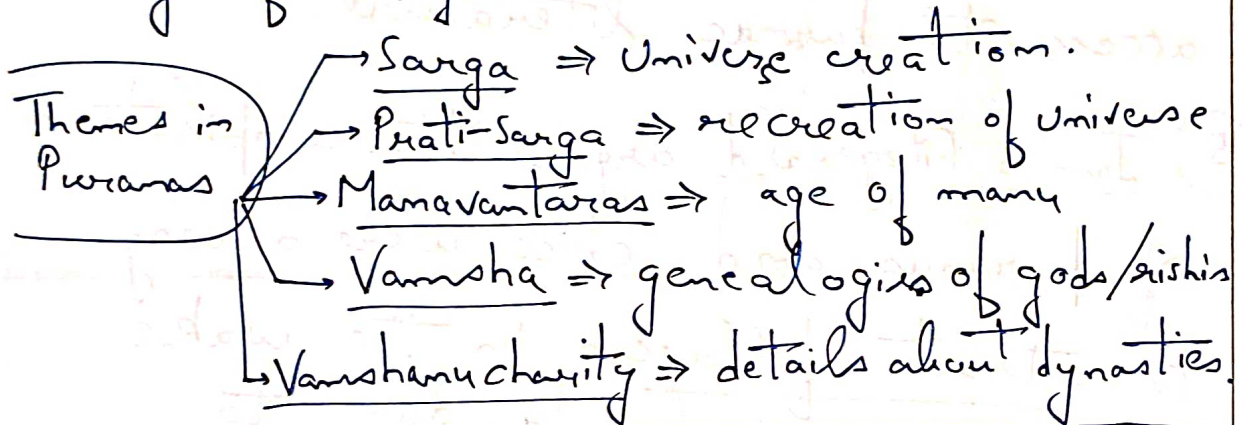 Themes in
Puranas
Sarga ⇒ Universe creation.
Prati-Sarga ⇒ recreation of universe
Manavantaras ⇒ age of manu
Vamsha ⇒ genealogies of gods/rishis
Vamshanucharity ⇒ details about dynasties.